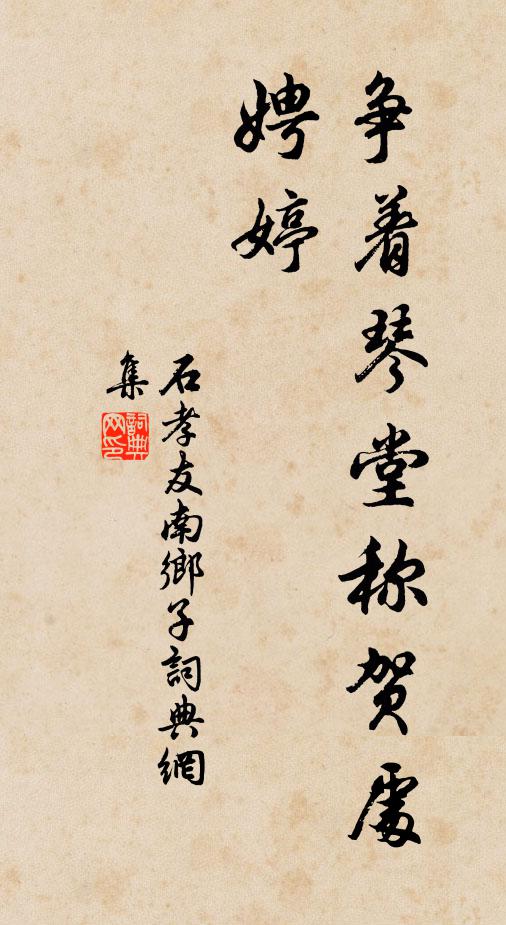 争着琴堂称贺處
娉婷
石孝友南鄉子詞典網
集
詞典
网印